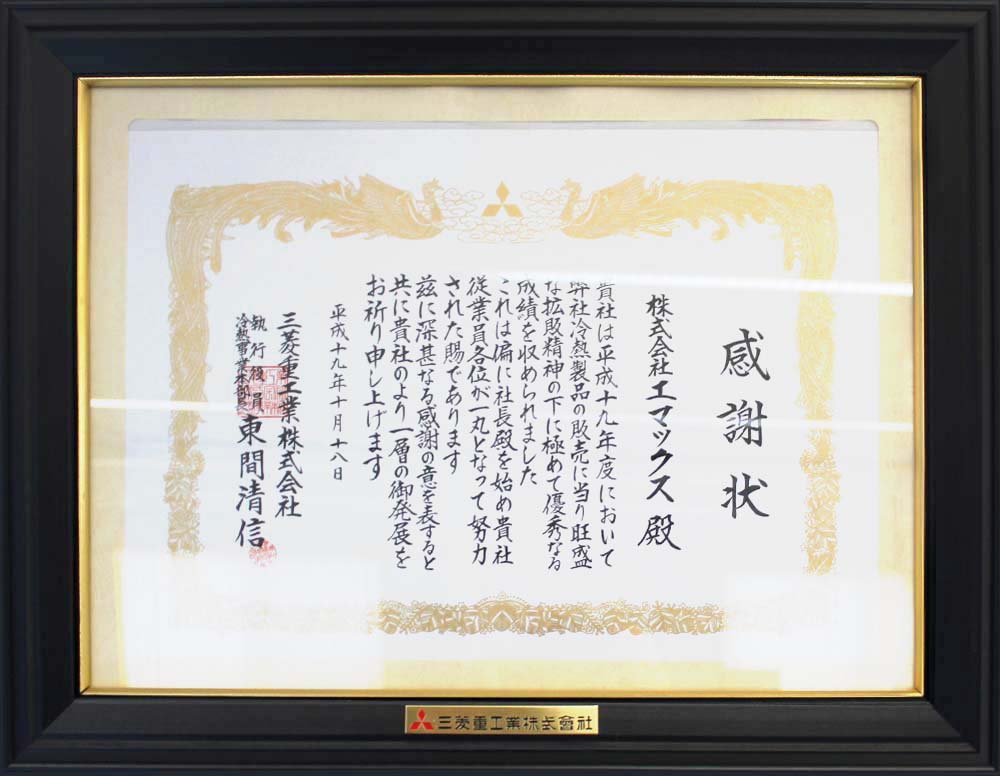 感謝状
株式会社エマックス殿
貴社は平成十九年度において
弊社冷熱製品の販売に当り旺盛
な拡販精神の下に極めて優秀なる
成績を収められました
これは偏に社長殿を始め貴社
従業員各位が一丸となって努力
された賜であります
茲に深甚なる感謝の意を表すると
共に貴社のより一層の御発展を
お祈り申し上げます
平成十九年十月十八日
三菱重工業株式会社
執行役員
冷熱事業本部長
東間清信
三菱重工業株式會社